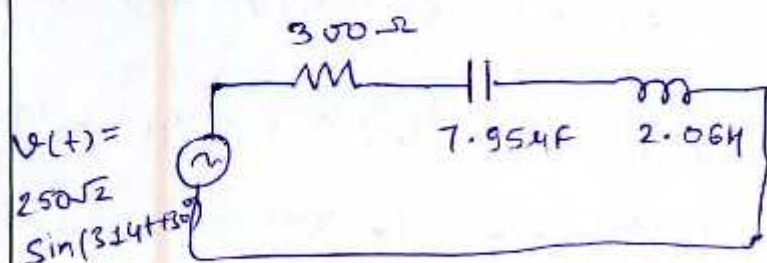 300 Ω
7.95μF 2.06H
v(t)=
250√2
Sin(314t+30°)